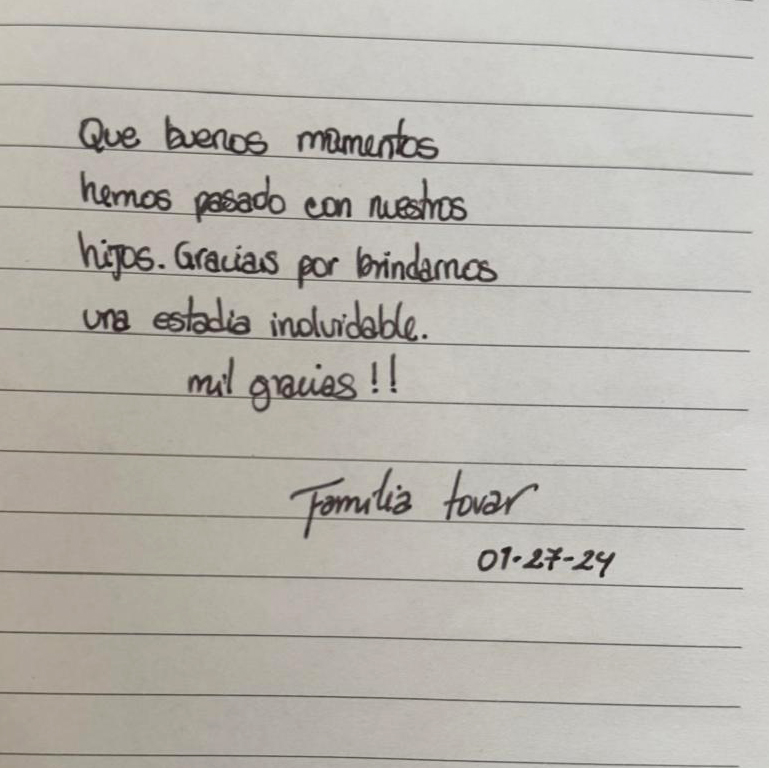 Que buenos momentos
hemos pasado con nuestros
hijos. Gracias por brindarnos
una estadia inolvidable.
mil gracias!!
Familia tovar
01-27-24